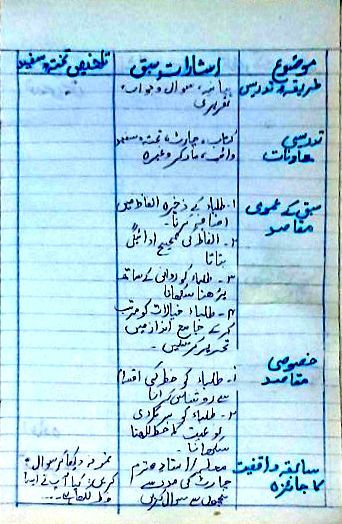 موضوع
اشارات سبق
تلخیص تختہ سفید
طریقہ تدریسی
بیانیہ، سوال و جواب،
تقریری
تدریسی
معاونات
کتاب، چارٹ، تختہ سفید
مارکر وغیرہ
سبق کے عمومی
مقاصد
۱۔ طلباء کے ذخیرہ الفاظ میں
اضافہ کرنا۔
۲۔ الفاظ کی صحیح ادائیگی
بتانا
۳۔ طلباء کو روانی کے ساتھ
پڑھنا سکھانا
۴۔ طلباء خیالات کو مرتب
کر کے جامع انداز میں
تحریر کر سکیں۔
خصوصی
مقاصد
۱۔ طلباء کو خط کی اقسام
سے روشناس کرانا
۲۔ طلباء کو سرکاری
نوعیت کا خط لکھنا
سکھانا۔
سابقہ واقفیت
کا جائزہ
معلم / استاد محترم
چارٹ کی مدد سے
بچوں سے سوال کریں
نمونہ دیکھا کر سوال
کریں کیا آپ نے ایسا
خط لکھا ہے۔۔۔